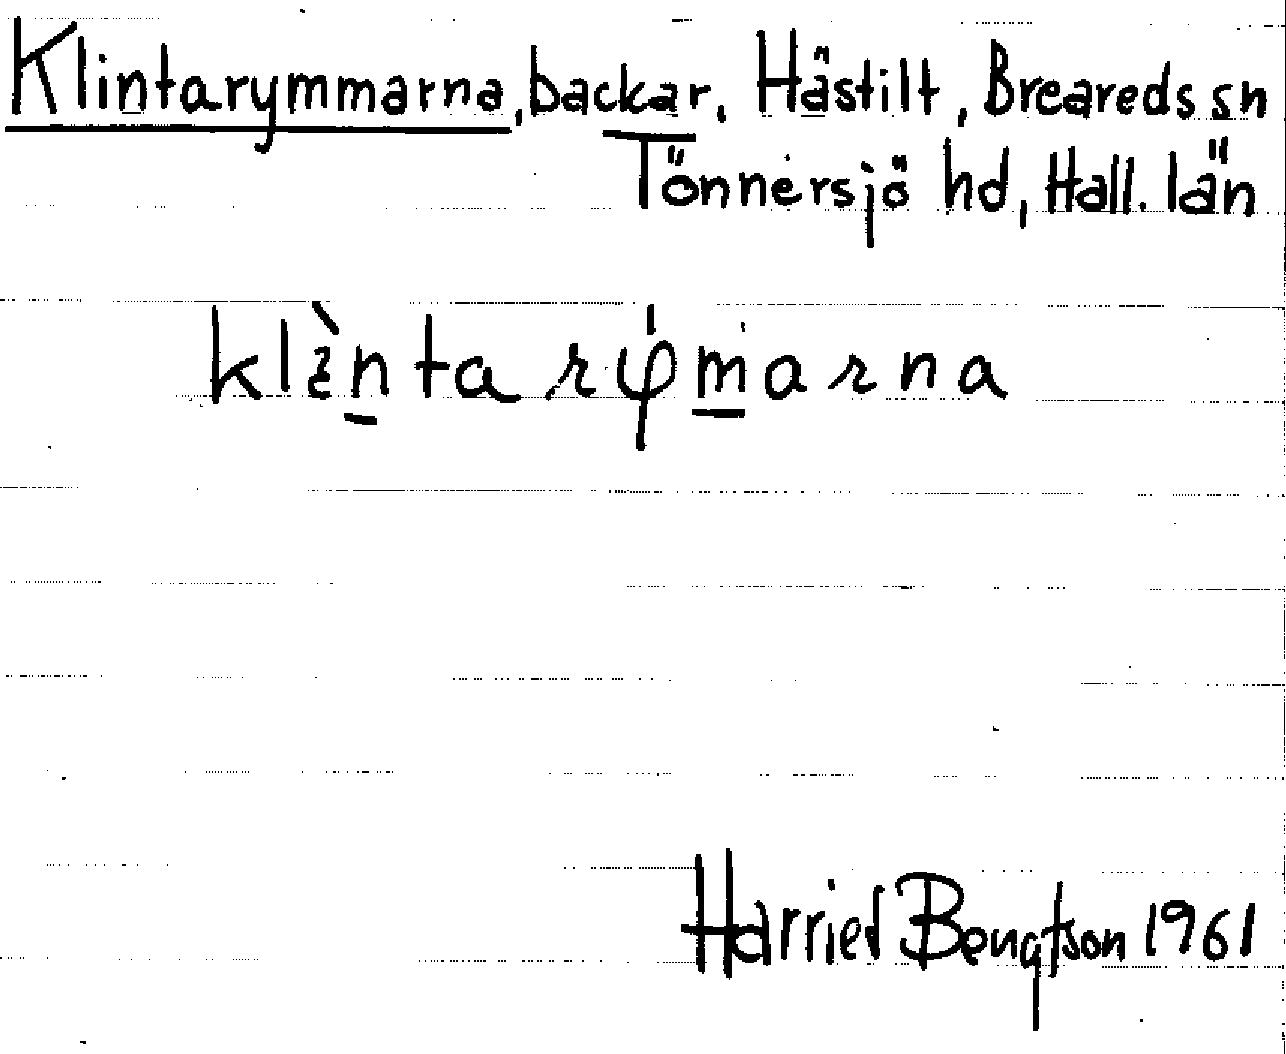 Klintarymmarna, backar, Hästilt, Breareds sn
Tönnersjö hd, Hall. län
klìntarymarna
Harriet Bengtson 1961